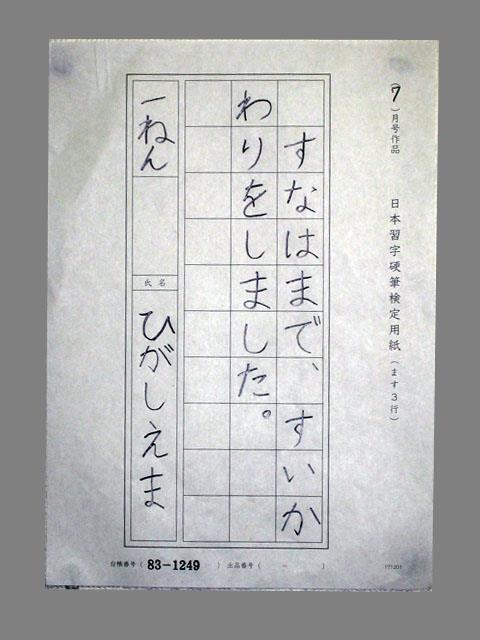 (7)月号作品 日本習字硬筆検定用紙(ます3行)
すなはまで、すいか
わりをしました。
一ねん
氏名
ひがしえま
台帳番号(83-1249) 出品番号( - )
171201